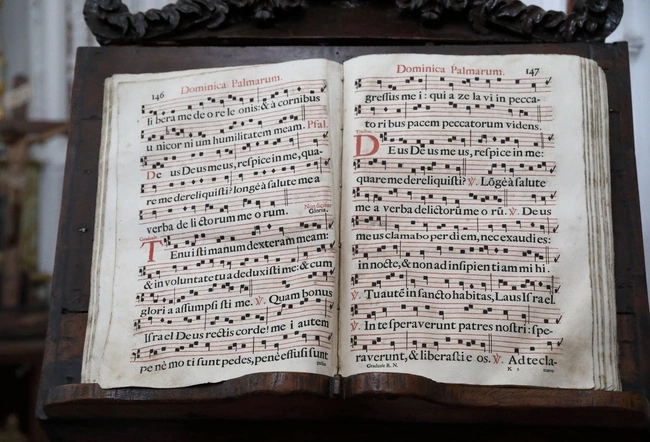 146
Dominica Palmarum.
libera me de ore le onis: & à cornibus
u nicor ni um humilitatem meam. Psal.
De us Deus meus, respice in me, qua-
re me dereliquisti? longè à salute mea
Gloria.
verba de li ctorum me o rum.
Tenuisti manum dexteram meam:
& in voluntate tu a deduxisti me: & cum
glori a assumpsi sti me. ℣. Quam bonus
Israel Deus rectis corde! me i autem
pe nè mo ti sunt pedes, penè effusi sunt
Dominica Palmarum.
147
gressus me i: qui a ze la vi in pecca-
to ribus pacem peccatorum videns.
DE us De us me us, respice in me:
quare me dereliquisti? ℣. Lōgè à salute
me a verba delictorū me o rū. ℣. De us
me us clama bo per di em, nec exaudi es:
in nocte, & non ad insipien ti am mi hi.
℣. Tu autē in sancto habitas, Laus Israel.
℣. In te speraverunt patres nostri: spe-
raverunt, & liberasti e os. ℣. Ad te cla-
Graduale R. N.
K 2